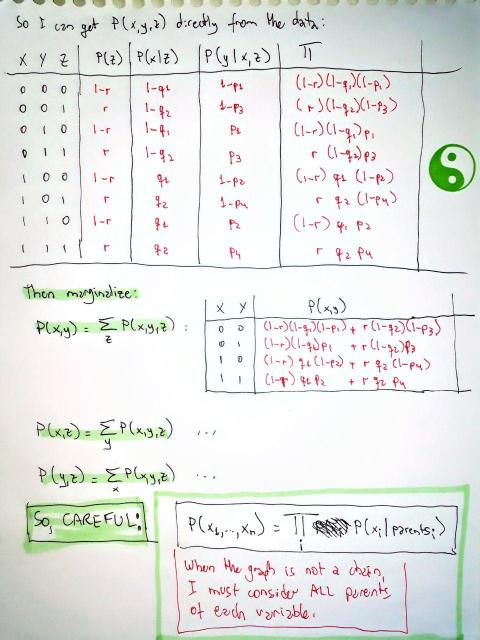 So I can get P(x,y,z) directly from the data:
X Y Z P(z) P(x|z) P(y|x,z) Π
0 0 0 1-r 1-q1 1-p1 (1-r)(1-q1)(1-p1)
0 0 1 r 1-q2 1-p3 (r)(1-q2)(1-p3)
0 1 0 1-r 1-q1 p1 (1-r)(1-q1)p1
0 1 1 r 1-q2 p3 r (1-q2)p3
1 0 0 1-r q1 1-p2 (1-r) q1 (1-p2)
1 0 1 r q2 1-p4 r q2 (1-p4)
1 1 0 1-r q1 p2 (1-r) q1 p2
1 1 1 r q2 p4 r q2 p4
Then marginalize:
X Y P(x,y)
P(x,y) = Σz P(x,y,z) :
0 0 (1-r)(1-q1)(1-p1) + r(1-q2)(1-p3)
0 1 (1-r)(1-q1)p1 + r(1-q2)p3
1 0 (1-r) q1(1-p2) + r q2(1-p4)
1 1 (1-r) q1 p2 + r q2 p4
P(x,z) = Σy P(x,y,z) ...
P(y,z) = Σx P(x,y,z) ...
So, CAREFUL:
P(x1,...,xn) = Πi P(xi|parentsi)
When the graph is not a chain,
I must consider ALL parents
of each variable.